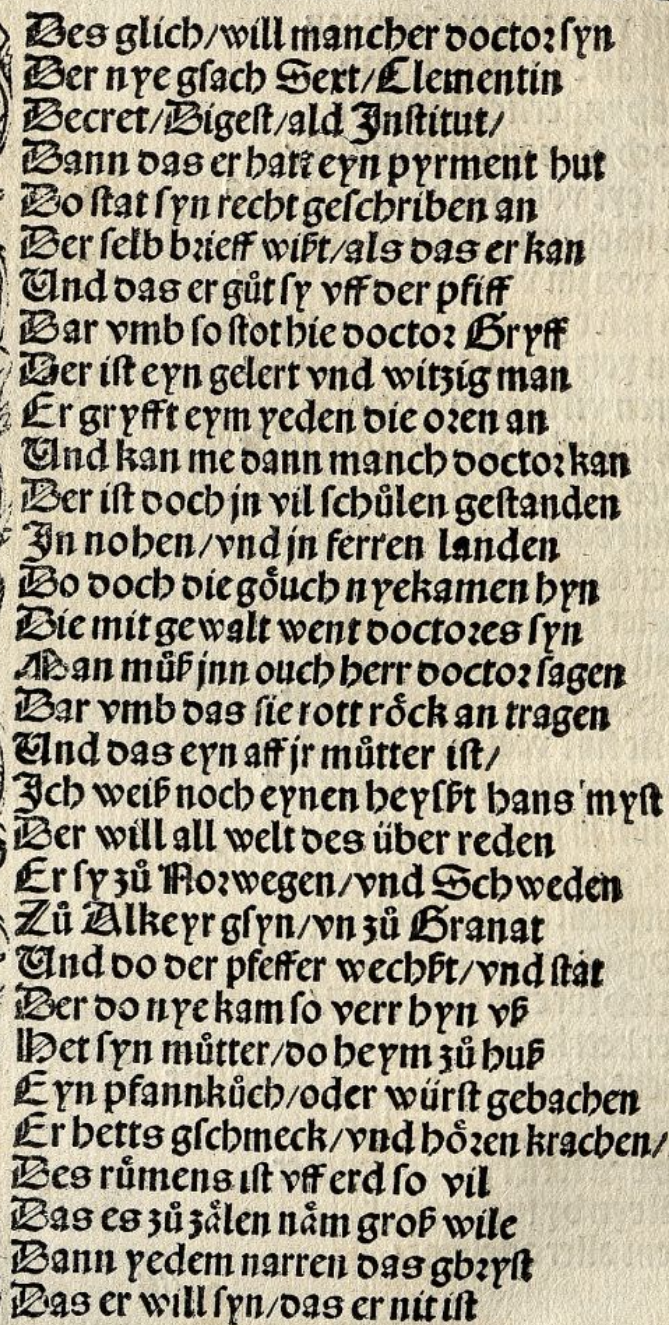 Des glich/will mancher doctor syn
Der nye gsach Sext/Clementin
Decret/Digest/ald Institut/
Dann das er hatt eyn pyrment hut
Do stat syn recht geschriben an
Der selb brieff wißt/als das er kan
Und das er gůt sy vff der pfiff
Dar vmb so stot hie doctor Gryff
Der ist eyn gelert vnd witzig man
Er gryfft eym yeden die oren an
Und kan me dann manch doctor kan
Der ist doch jn vil schůlen gestanden
In nohen/vnd jn ferren landen
Do doch die göuch nye kamen hyn
Die mit gewalt went doctores syn
Man můß jnn ouch herr doctor sagen
Dar vmb das sie rott röck an tragen
Und das eyn aff jr můtter ist/
Ich weiß noch eynen heyßt hans myst
Der will all welt des über reden
Er sy zů Norwegen/vnd Schweden
Zů Alkeyr gsyn/vn zů Granat
Und do der pfeffer wechßt/vnd stat
Der do nye kam so verr hyn vß
Het syn můtter/do heym zů huß
Eyn pfannkůch/oder würst gebachen
Er hetts gschmeck/vnd hören krachen/
Des růmens ist vff erd so vil
Das es zů zälen näm groß wile
Dann yedem narren das gbryst
Das er will syn/das er nit ist